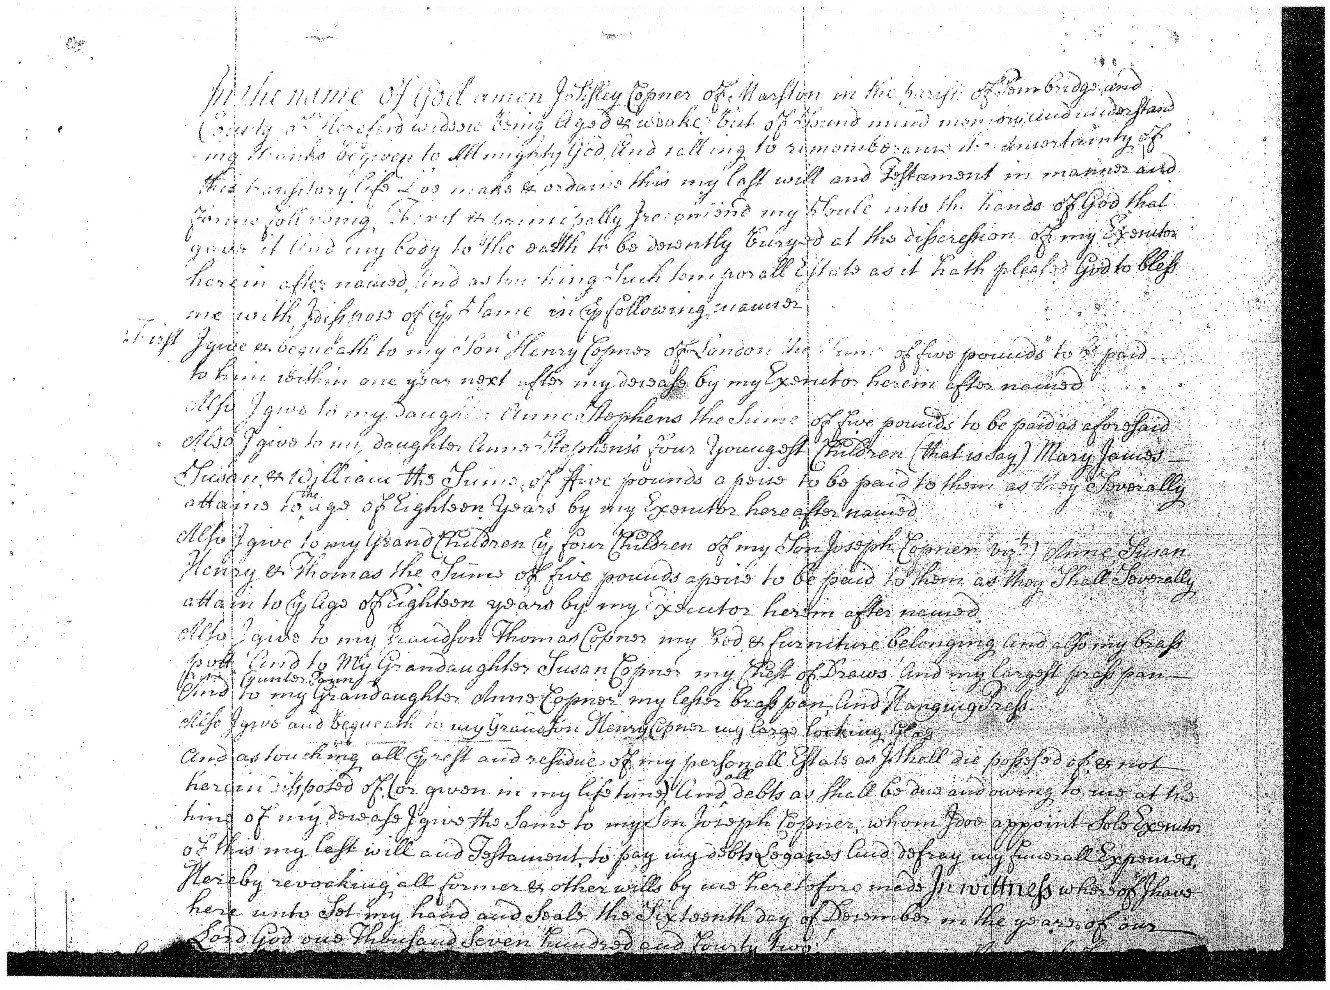 In the name of God amen I Sisley Copner of Marston in the parish of Pembridge and
County of Hereford widdow being Aged & weake but of Sound mind memory and understand
-ing thanks be given to Almighty God And calling to rememberance the uncertainty of
this transitory life Doe make & ordaine this my last will and Testament in manner and
forme following, First & principally I recomend my Soule into the hands of God that
gave it And my body to the earth to be decently buryed at the discression of my Executor
herein after named, And as touching Such temporall Estate as it hath pleased God to bless
me with, I dispose of ye Same in ye following manner
First I give & bequeath to my Son Henry Copner of London the Sume of five pounds to be paid
to him within one year next after my decease by my Executor herein after named
Also I give to my Daughter Anne Stephens the Sume of five pounds to be paid as aforesaid
Also I give to my daughter Anne Stephens's four Youngest Children (that is Say) Mary James
Susan & William the Sume of five pounds a peice to be paid to them as they Severally
attaine to the age of Eighteen Years by my Executor hereafter named
Also I give to my Grand Children ye four Children of my Son Joseph Copner (vizt) Anne Susan
Henry & Thomas the Sume of five pounds apeice to be paid to them as they Shall Severally
attain to ye Age of Eighteen years by my Executor herein after named
Also I give to my Grandson Thomas Copner my bed & furniture belonging And also my brass
pott And to My Grandaughter Susan Copner my Chest of Draws And my largest brass pan
And to my Grandaughter Anne Copner my lesser brass pan, And Hanging Press
Also I give and bequeath to my Grandson Henry Copner my large looking Glass
And as touching all ye rest and residue of my personall Estate as I shall die possesed of & not
herein disposed of (or given in my life time) And all debts as shall be due and owing to me at the
time of my decease I give the Same to my Son Joseph Copner, whom I doe appoint Sole Executor
of this my last will and Testament to pay my debts Legacies And defray my funerall Expences,
Hereby revoacking all former & other wills by me heretofore made In wittness whereof I have
here unto Set my hand and Seale the Sixteenth day of December in the yeare of our
Lord God one Thousand Seven hundred and Fourty Two